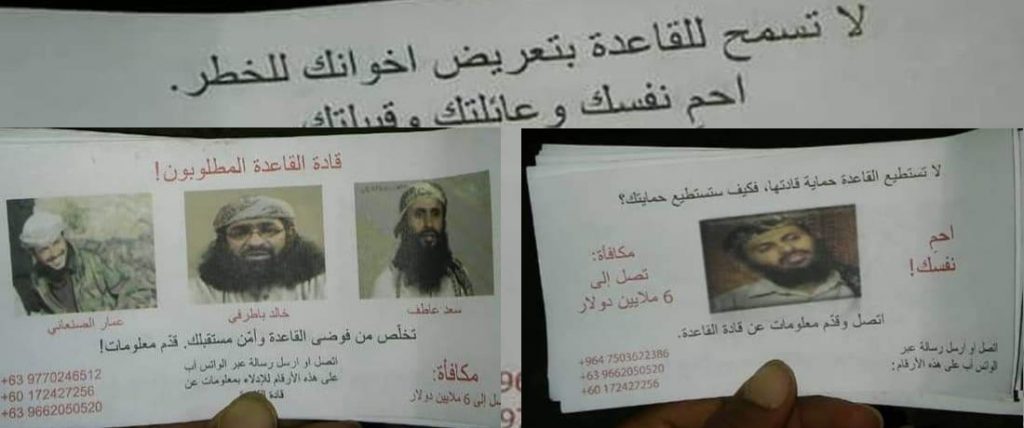 لا تسمح للقاعدة بتعريض اخوانك للخطر.
احمِ نفسك وعائلتك وقبيلتك
قادة القاعدة المطلوبون!
عمار الصنعاني
خالد باطرفي
سعد عاطف
تخلّص من فوضى القاعدة وأمّن مستقبلك. قدّم معلومات!
اتصل او ارسل رسالة عبر الواتس آب
على هذه الأرقام للإدلاء بمعلومات عن
قادة
+63 9770246512
+60 172427256
+63 9662050520
مكافأة:
تصل إلى 6 ملايين دولار
لا تستطيع القاعدة حماية قادتها، فكيف ستستطيع حمايتك؟
احمِ
نفسك!
مكافأة:
تصل إلى
6 ملايين دولار
اتصل وقدّم معلومات عن قادة القاعدة.
اتصل او ارسل رسالة عبر
الواتس آب على هذه الأرقام:
+964 7503622386
+63 9662050520
+60 172427256